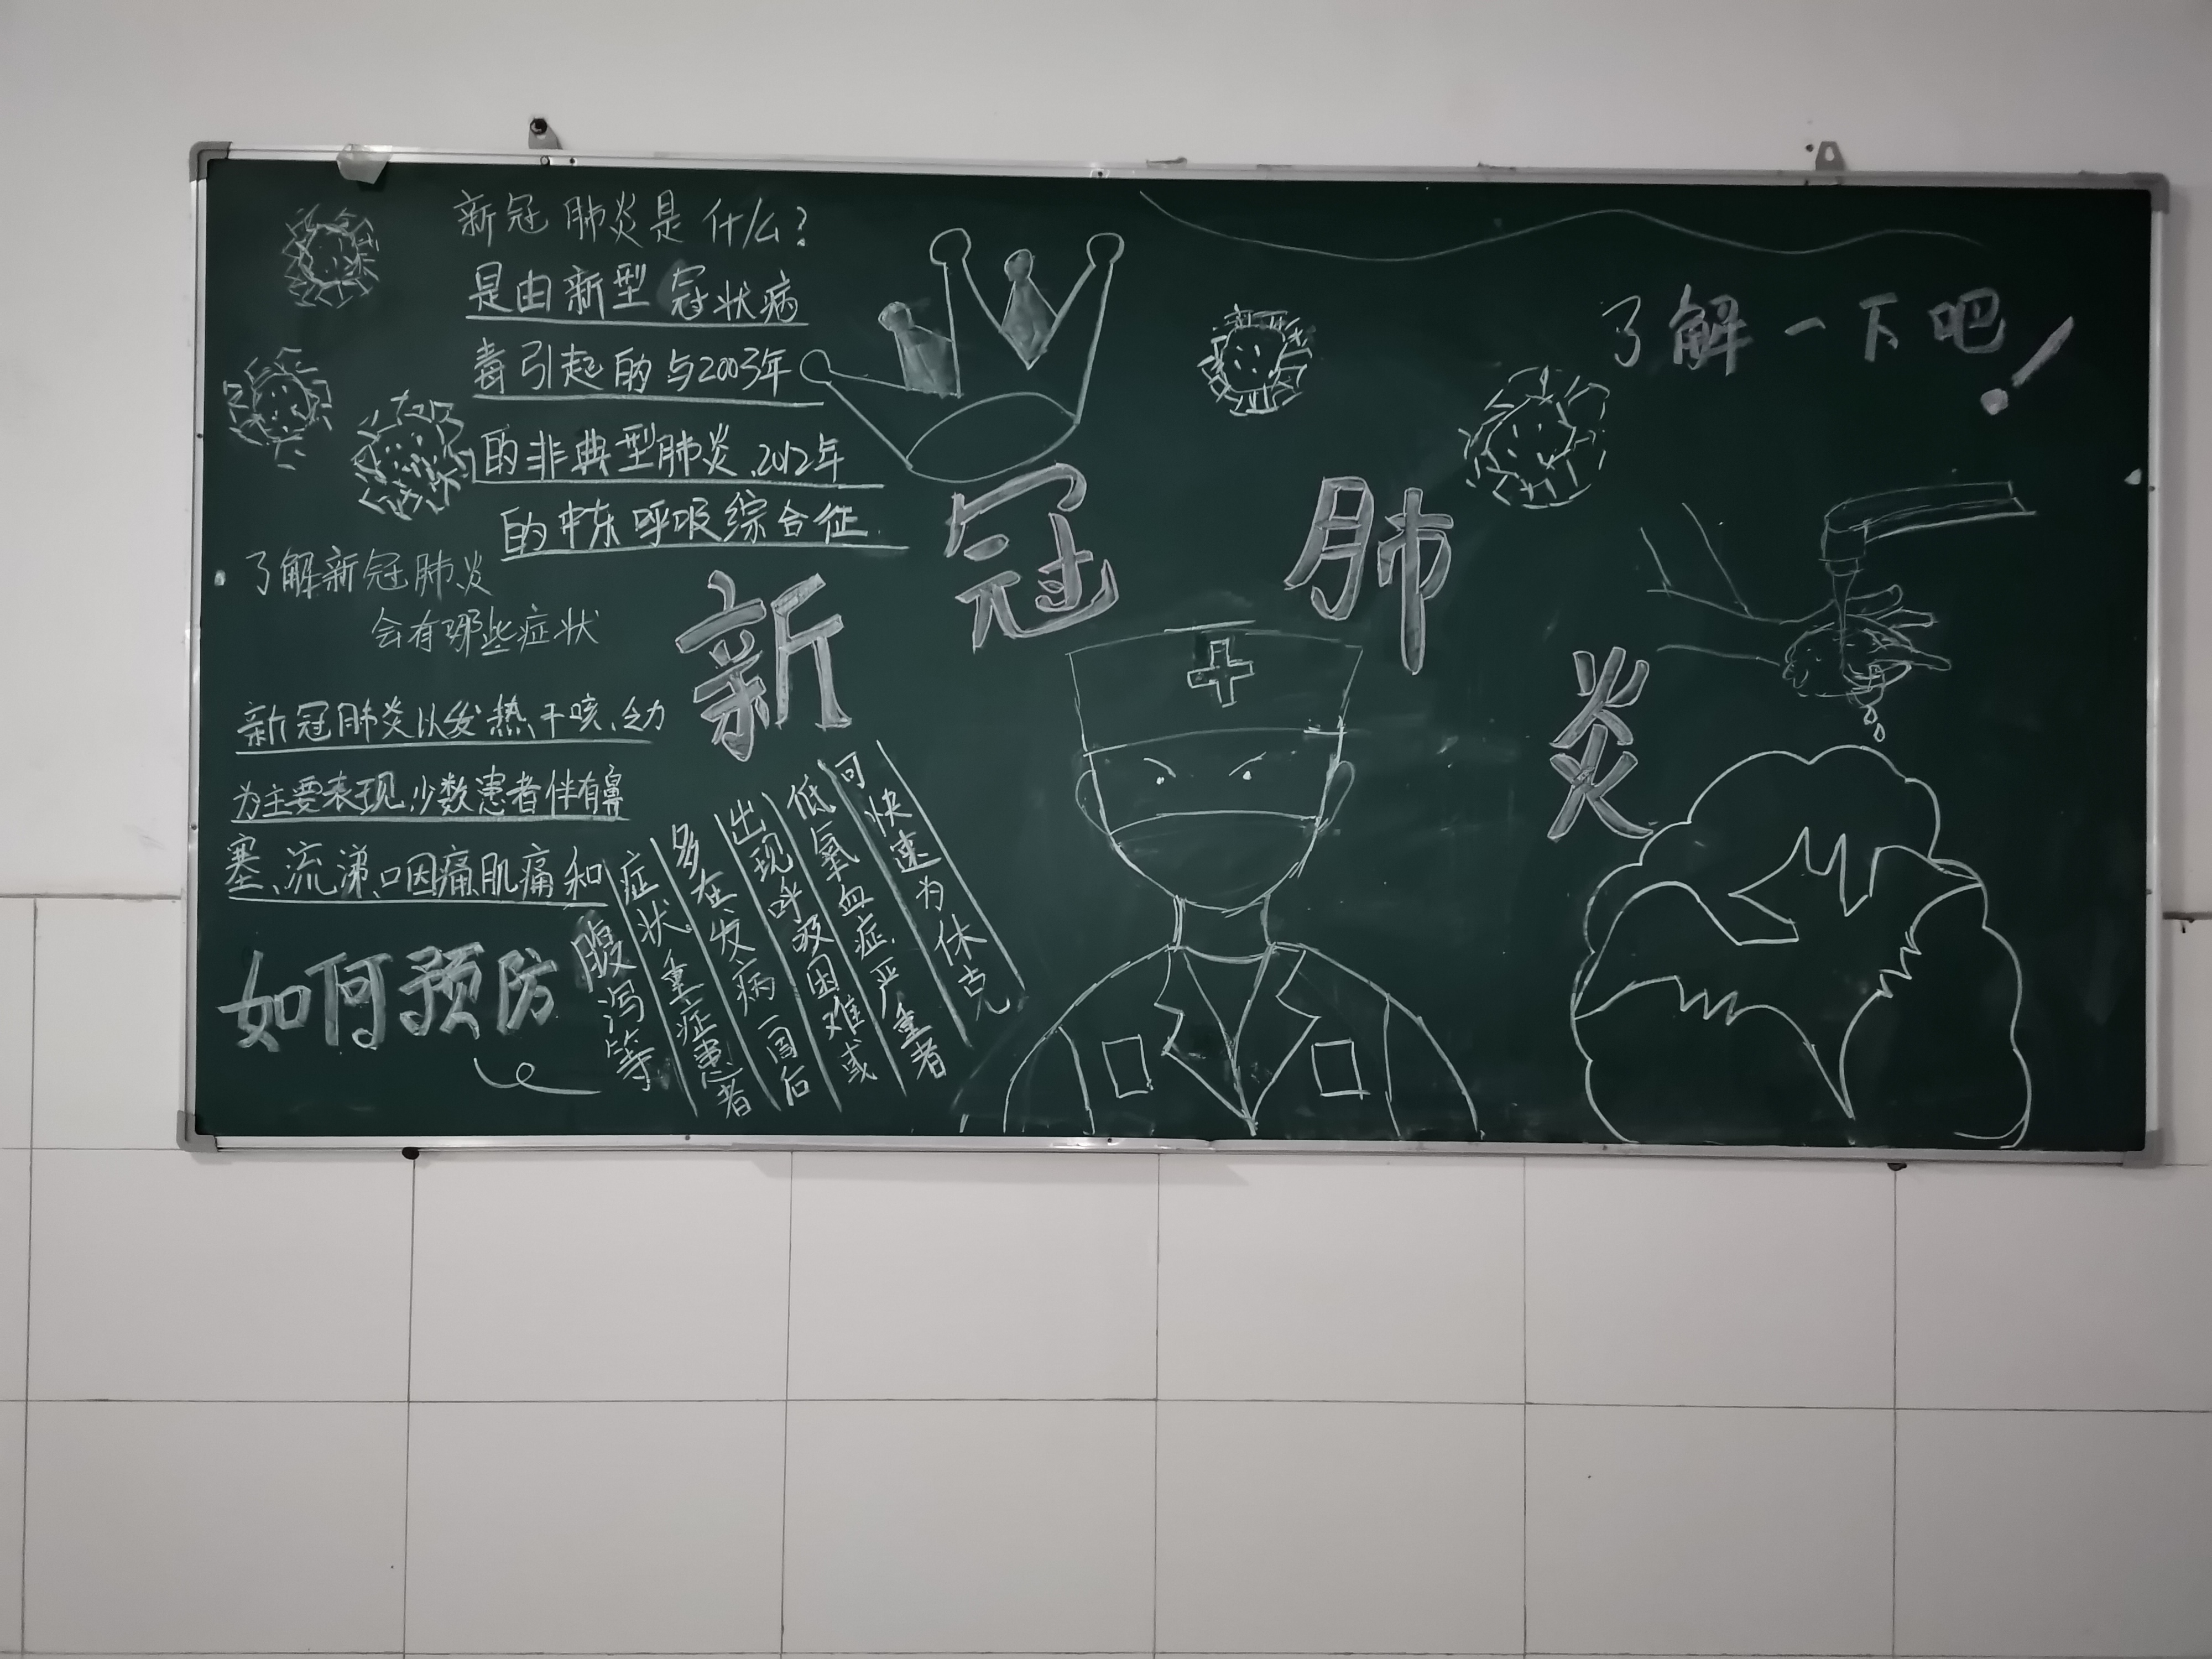 新冠肺炎是什么?
是由新型冠状病
毒引起的与2003年
的非典型肺炎、2012年
的中东呼吸综合征
了解新冠肺炎
会有哪些症状
新冠肺炎以发热、干咳、乏力
为主要表现,少数患者伴有鼻
塞、流涕、口因痛、肌痛和
腹泻等
症状重症患者
多在发病一周后
出现呼吸困难或
低氧血症,严重者
可快速为休克
如何预防
新冠肺炎
了解一下吧!